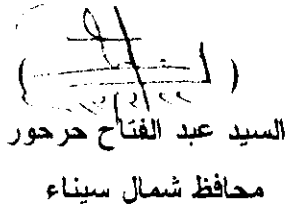 السيد عبد الفتاح حرحور
محافظ شمال سيناء